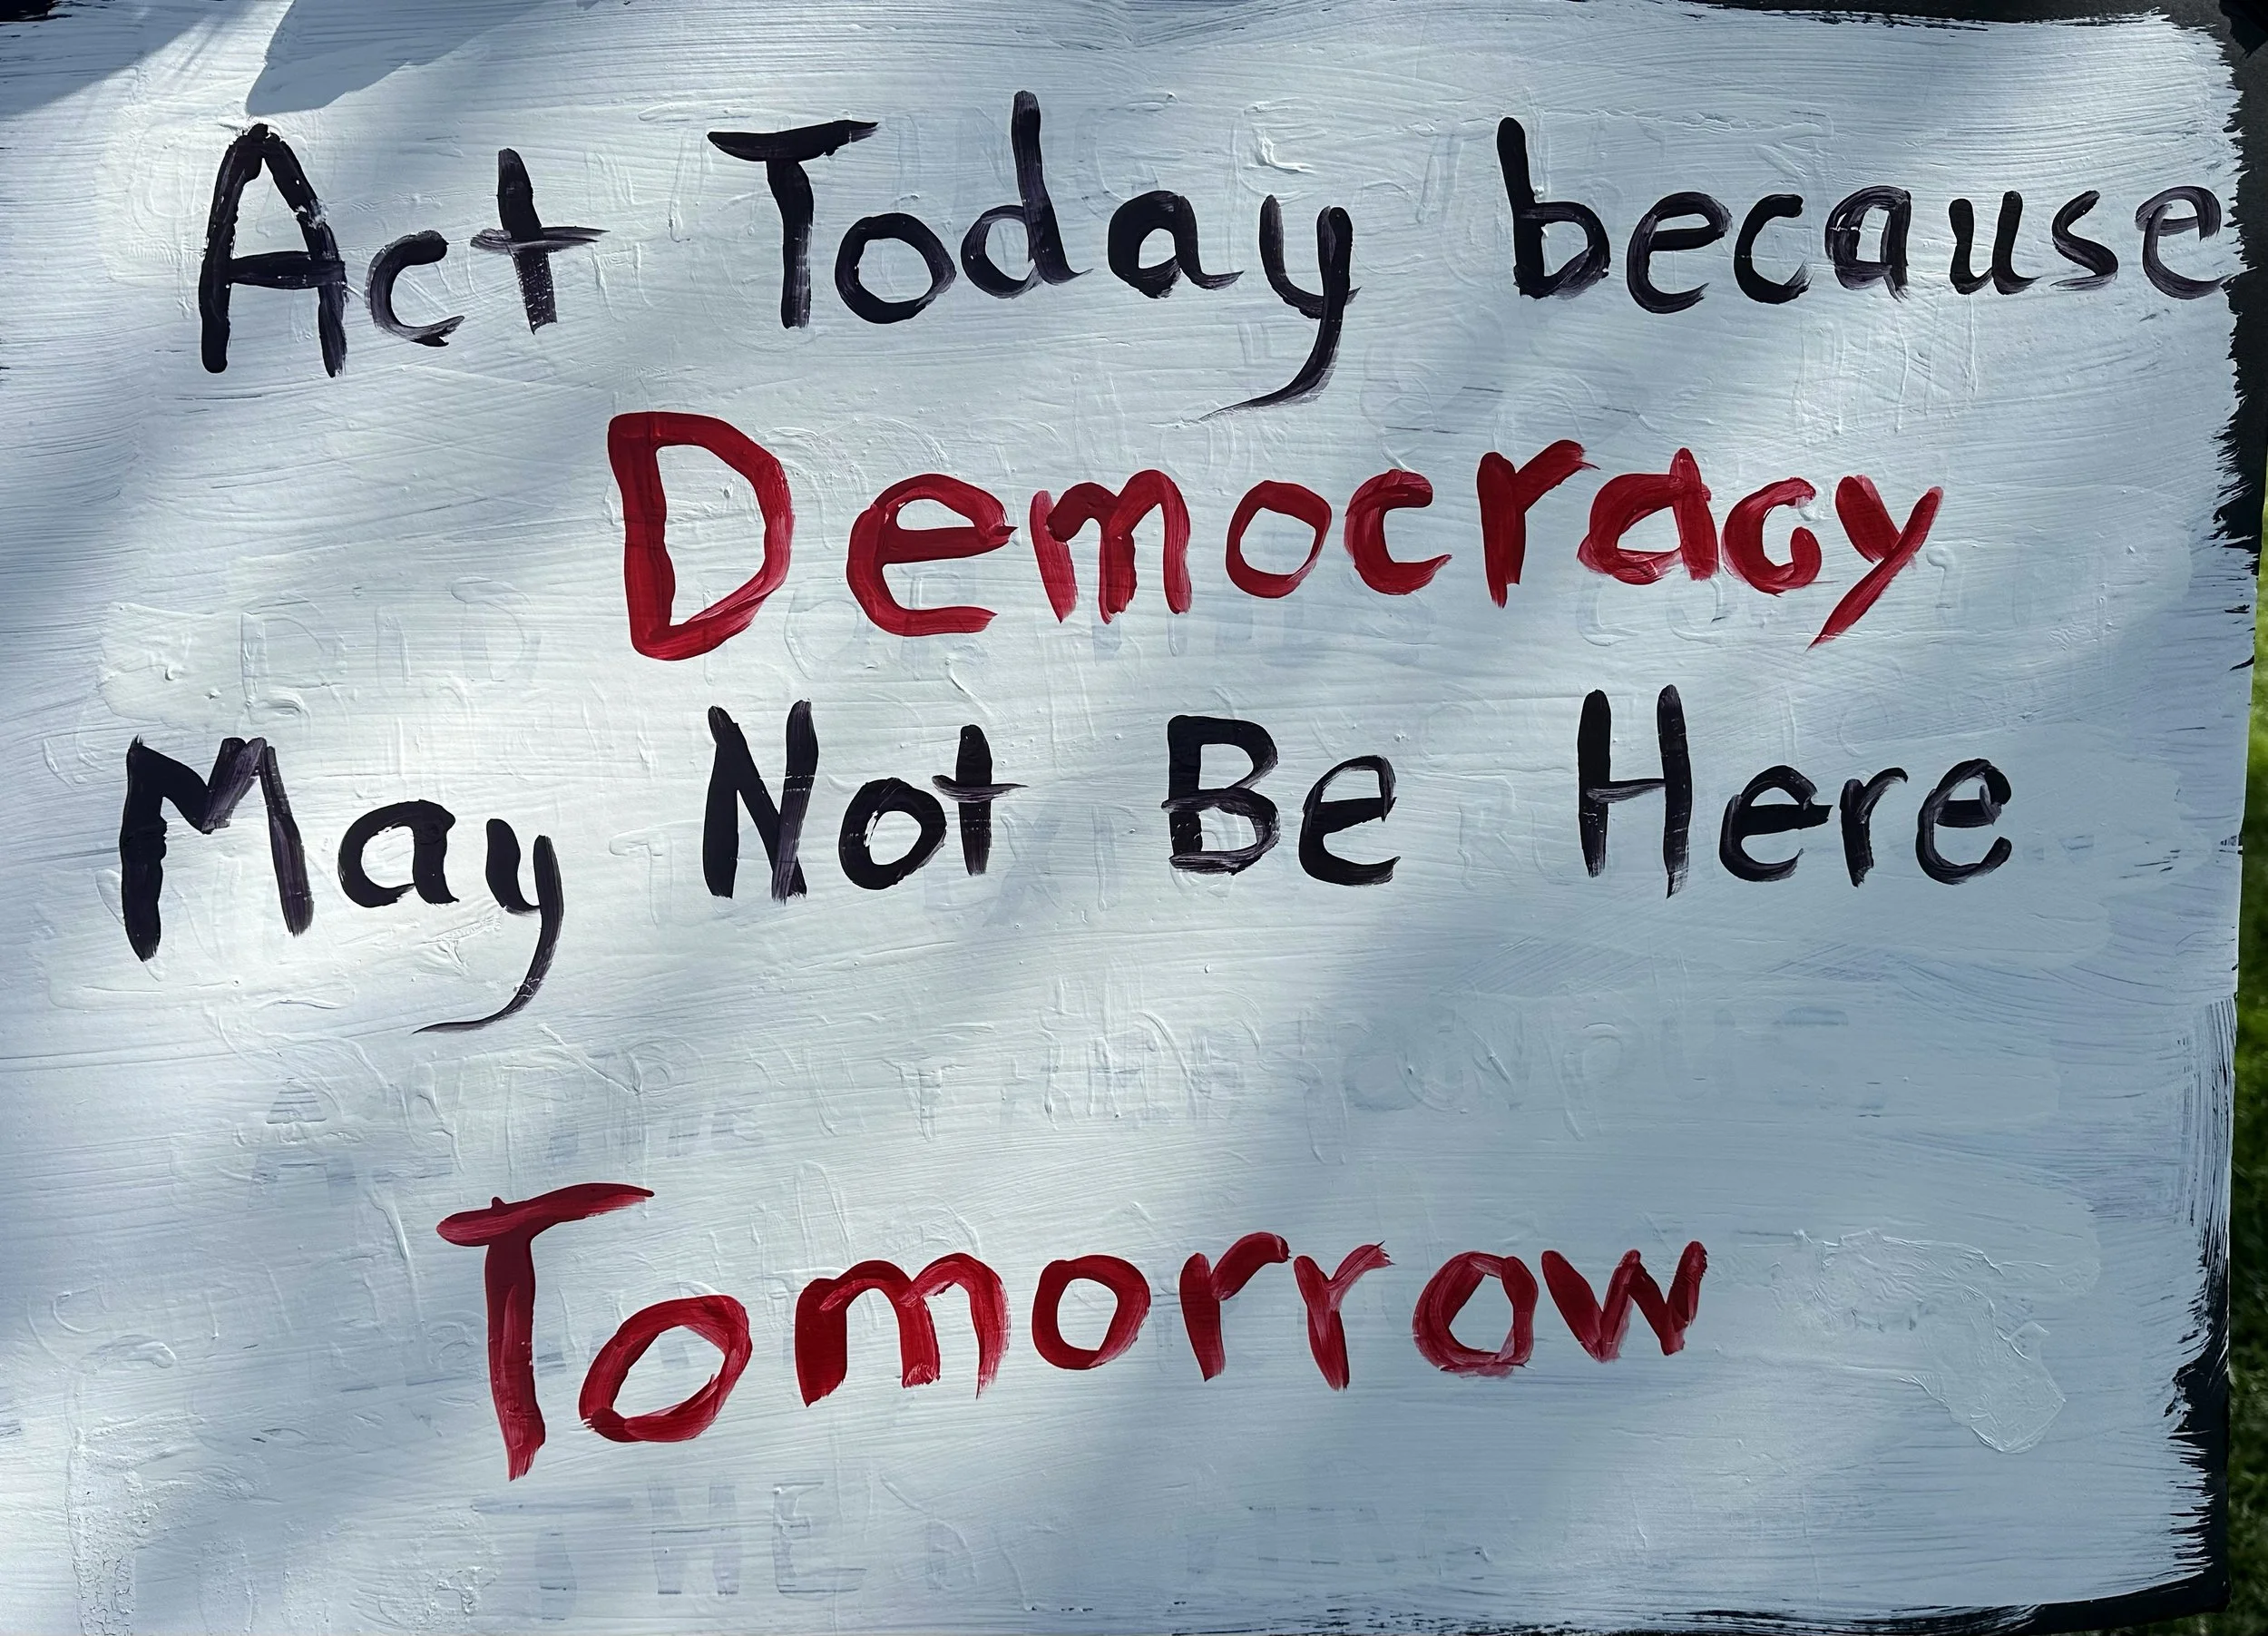 Act Today because
Democracy
May Not Be Here
Tomorrow